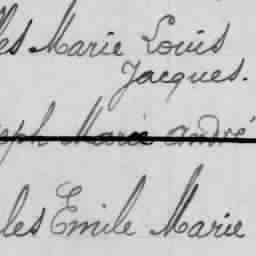 les Marie Louis
Jacques.
eph Marie André
les Emile Marie